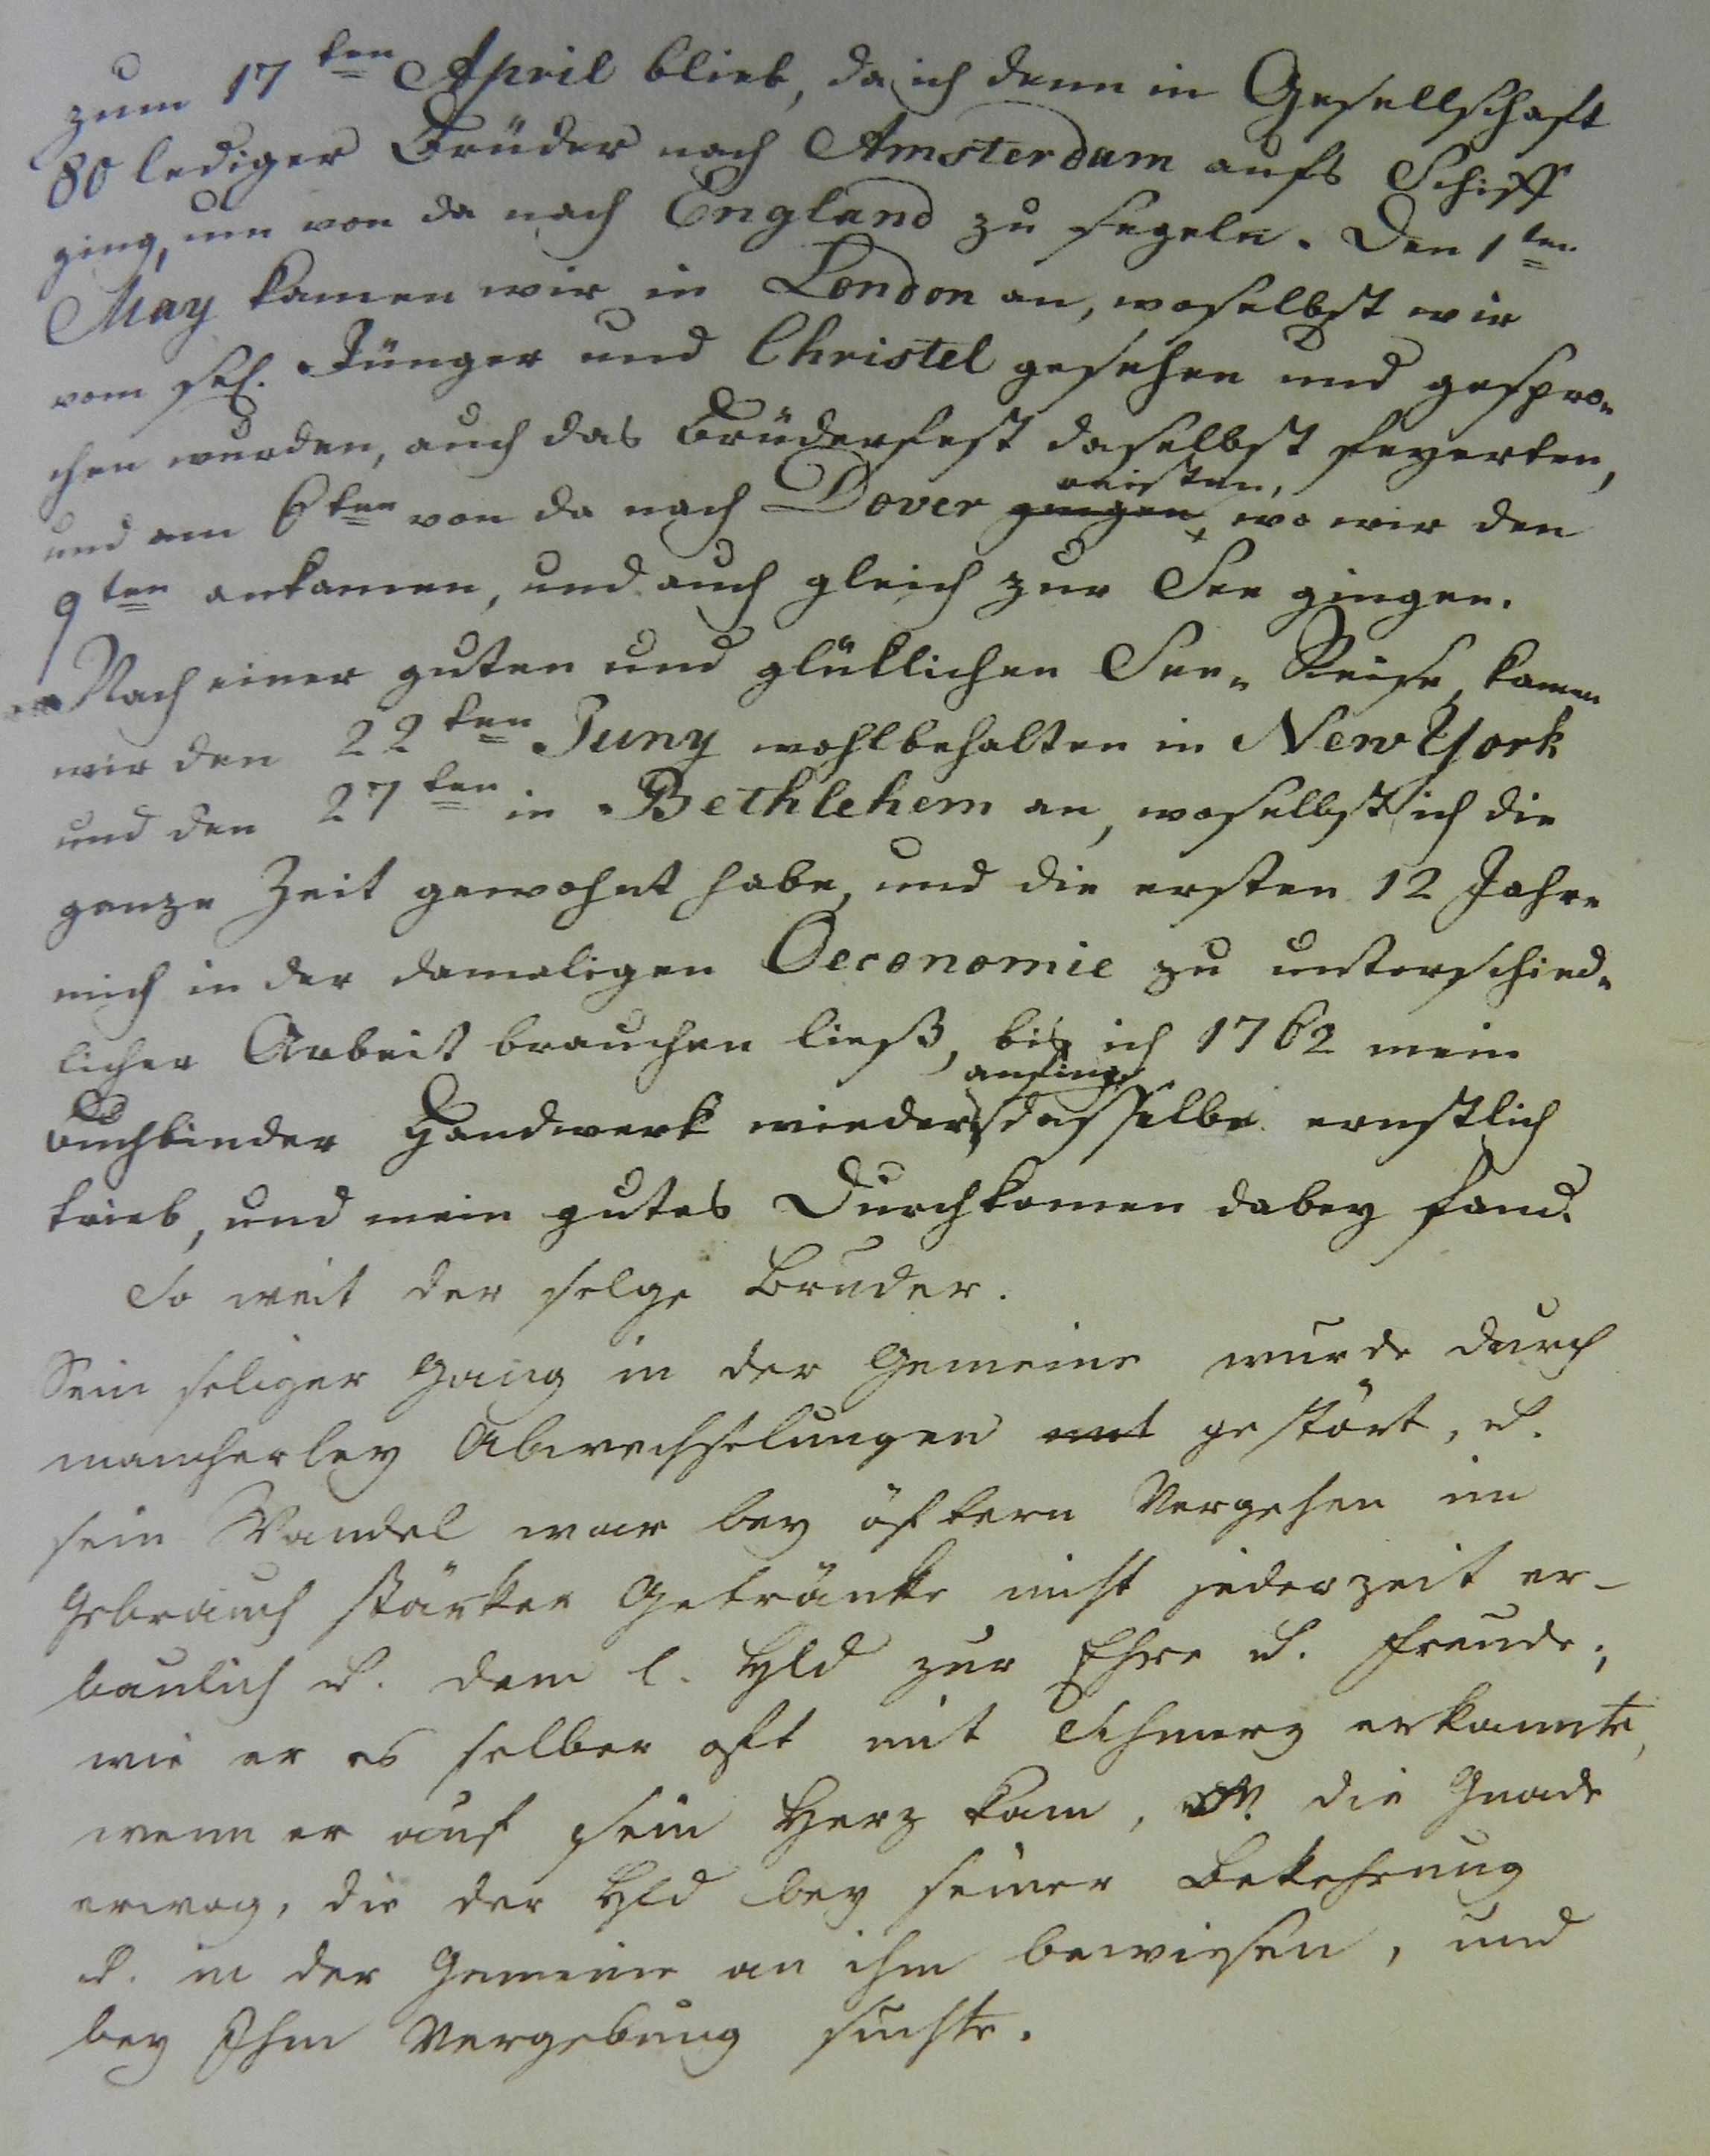 zum 17ten April blieb, da ich denn in Gesellschaft
80 lediger Brüder nach Amsterdam aufs Schiff
ging, um von da nach England zu segeln. Den 1ten
May kamen wir in London an, woselbst wir
vom sel. Jünger und Christel gesehen und gespro-
chen wurden, auch das Brüderfest daselbst feyerten,
und am 6ten von da nach Dover gingen reisten, wo wir den
9ten ankamen, und auch gleich zur See gingen.
Nach einer guten und glüklichen See-Reise, kamen
wir den 22ten Juny wohlbehalten in New York
und den 27ten in Bethlehem an, woselbst ich die
ganze Zeit gewohnt habe, und die ersten 12 Jahre
mich in der damaligen Oeconomie zu unterschied-
licher Arbeit brauchen ließ, bis ich 1762 mein
Buchbinder Handwerk wieder anfing, dasselbe ernstlich
trieb, und mein gutes Durchkomen dabey fand.
So weit der selge Bruder.
Sein seliger Gang in der Gemeine wurde durch
mancherley Abwechselungen gestört, u.
sein Wandel war bey öftern Vergehen im
Gebrauch starker Getränke nicht jederzeit er-
baulich u. dem l. Hld zur Ehre u. Freude;
wie er es selber oft mit Schmerz erkannte,
wenn er auf sein Herz kam, u. die Gnade
erwog, die der Hld bey seiner Bekehrung
u. in der Gemeine an ihm bewiesen, und
bey Ihm Vergebung suchte.